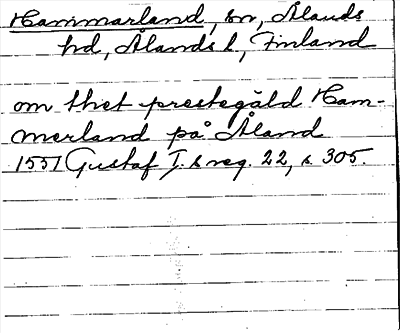 Hammarland, sn, Ålands
hd, Ålands l, Finland
om thet prestegäld Ham-
merland på Åland
1551 Gustaf I.s reg. 22, s. 305.